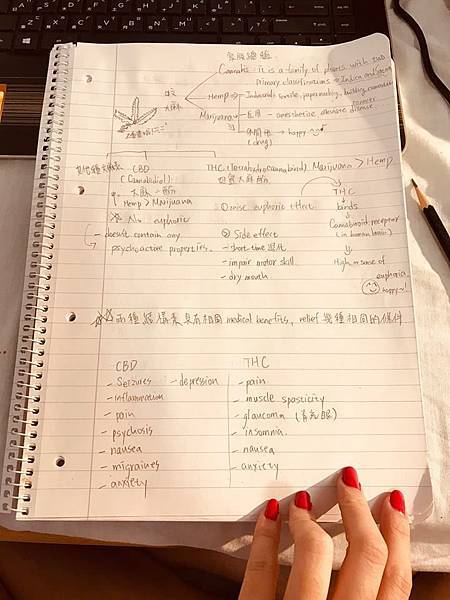 Cannabis: it is a family of plants with two
primary classifications - Indica and
Hemp → Industrial: textile, papermaking, building,
大麻
Marijuana → 醫用 - anesthetize, alleviate disease
(drug) → happy
CBD
(Cannabidiol)
Hemp > Marijuana
No euphoric
- doesn't contain any
psychoactive properties.
THC (Tetrahydrocannabinol) Marijuana > Hemp
四氫大麻酚
① raise euphoric effect
② side effect
- short time
- impair motor skill
- dry mouth
THC
binds
Cannabinoid receptor
(in human brain)
High or sense of
euphoria
happy~!
兩種結構素具有相同 medical benefits, relief 幾種相同的條件
CBD
- seizures - depression
- inflammation
- pain
- psychosis
- nausea
- migraines
- anxiety
THC
- pain
- muscle spasticity
- glaucoma (青光眼)
- insomnia.
- nausea
- anxiety